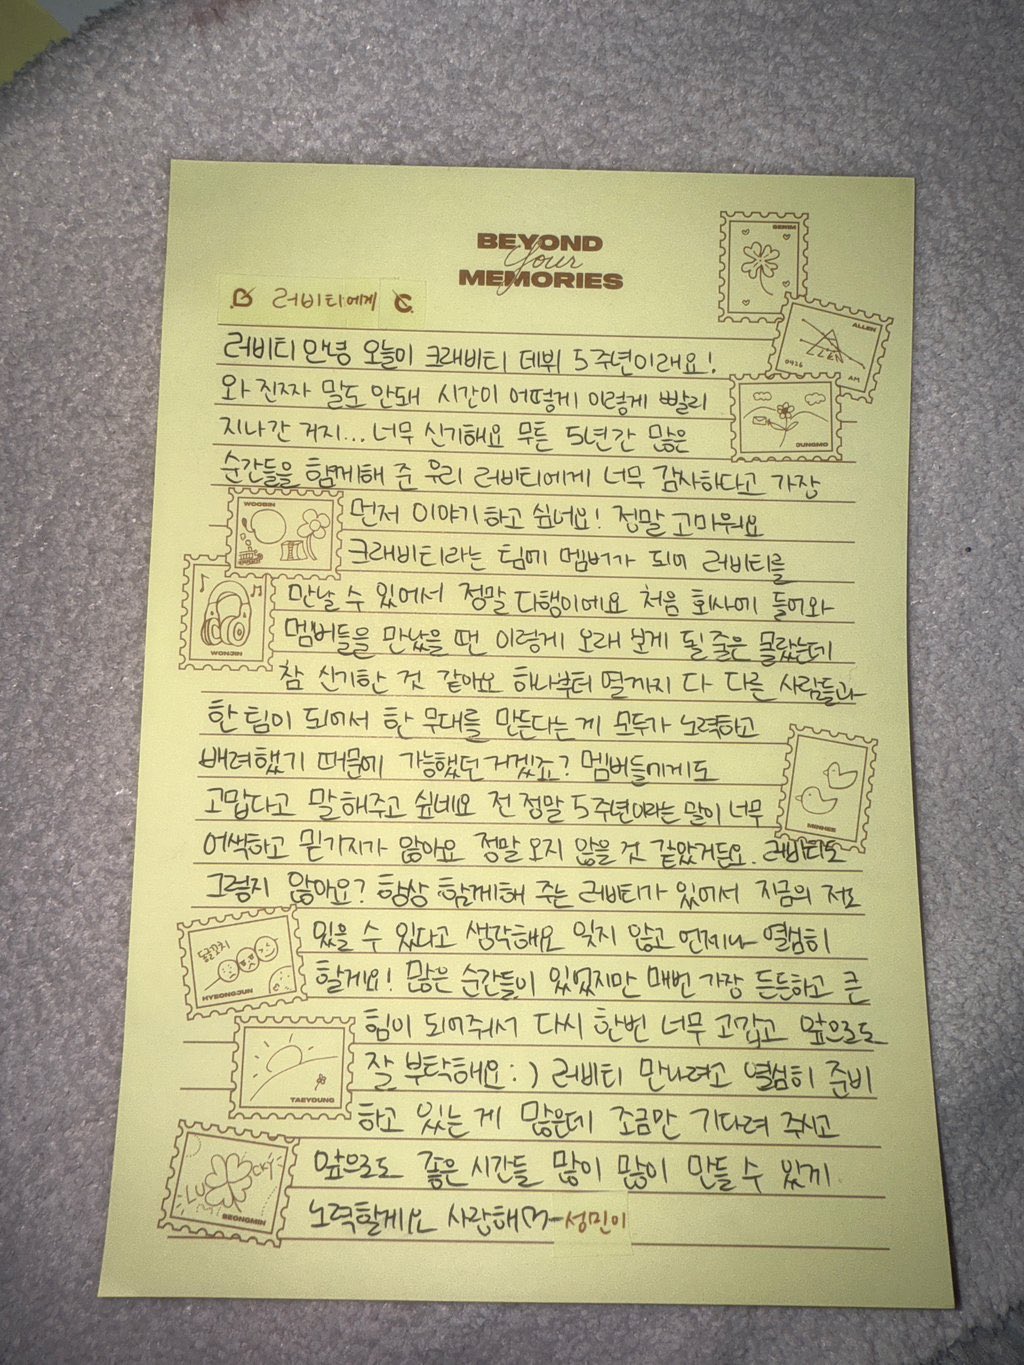 BEYOND
Your
MEMORIES
SERIM
ALLEN
ALLEN
0426
AM
JUNGMO
러비티에게
러비티 안녕 오늘이 크래비티 데뷔 5주년이래요!
와 진짜 말도 안돼 시간이 어떻게 이렇게 빨리
지나간 거지... 너무 신기해요 무튼 5년간 많은
순간들을 함께해 준 우리 러비티에게 너무 감사하다고 가장
먼저 이야기하고 싶네요! 정말 고마워요
크래비티라는 팀에 멤버가 되어 러비티를
만날 수 있어서 정말 다행이에요 처음 회사에 들어와
멤버들을 만났을 땐 이렇게 오래 보게 될 줄은 몰랐는데
참 신기한 것 같아요 하나부터 열까지 다 다른 사람들과
한 팀이 되어서 한 무대를 만든다는 게 모두가 노력하고
배려했기 때문에 가능했던거겠죠? 멤버들에게도
고맙다고 말해주고 싶네요 전 정말 5주년이라는 말이 너무
어색하고 믿기지가 않아요 정말 오지 않을 것 같았거든요. 러비티도
그렇지 않아요? 항상 함께해 주는 러비티가 있어서 지금의 저도
있을 수 있다고 생각해요 잊지 않고 언제나 열심히
할게요! 많은 순간들이 있었지만 매번 가장 든든하고 큰
힘이 되어줘서 다시 한번 너무 고맙고 앞으로도
잘 부탁해요:) 러비티 만나려고 열심히 준비
하고 있는 게 많은데 조금만 기다려 주시고
앞으로도 좋은 시간들 많이 많이 만들 수 있게
노력할게요 사랑해 -성민이
WOOBIN
WONJIN
MINHEE
HYEONGJUN
TAEYOUNG
LUCKY
SEONGMIN